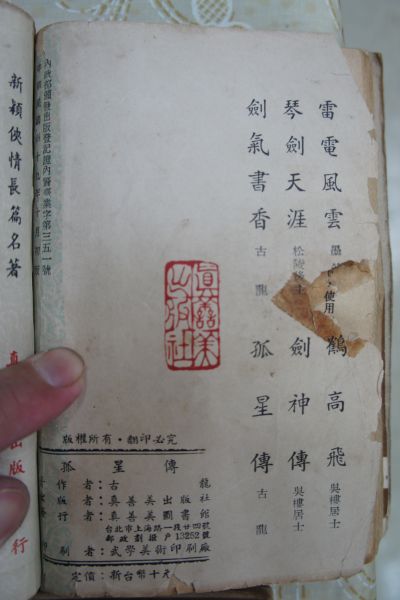 雷電風雲 墨
鶴高飛 吳樓居士
琴劍天涯 松陵修士
劍神傳 吳樓居士
劍氣書香 古龍
孤星傳 古龍
使用
真善美出版社
內政部頒發出版登記證內警臺業字第三五一號
版權所有・翻印必究
孤星傳
作者:古龍
版者:真善美出版社
行者:真善美圖書館
台北市上海路一段廿四號
郵政劃撥戶13252號
刷者:武學美術印刷廠
定價:新台幣十元
新穎俠情長篇名著
出版
行